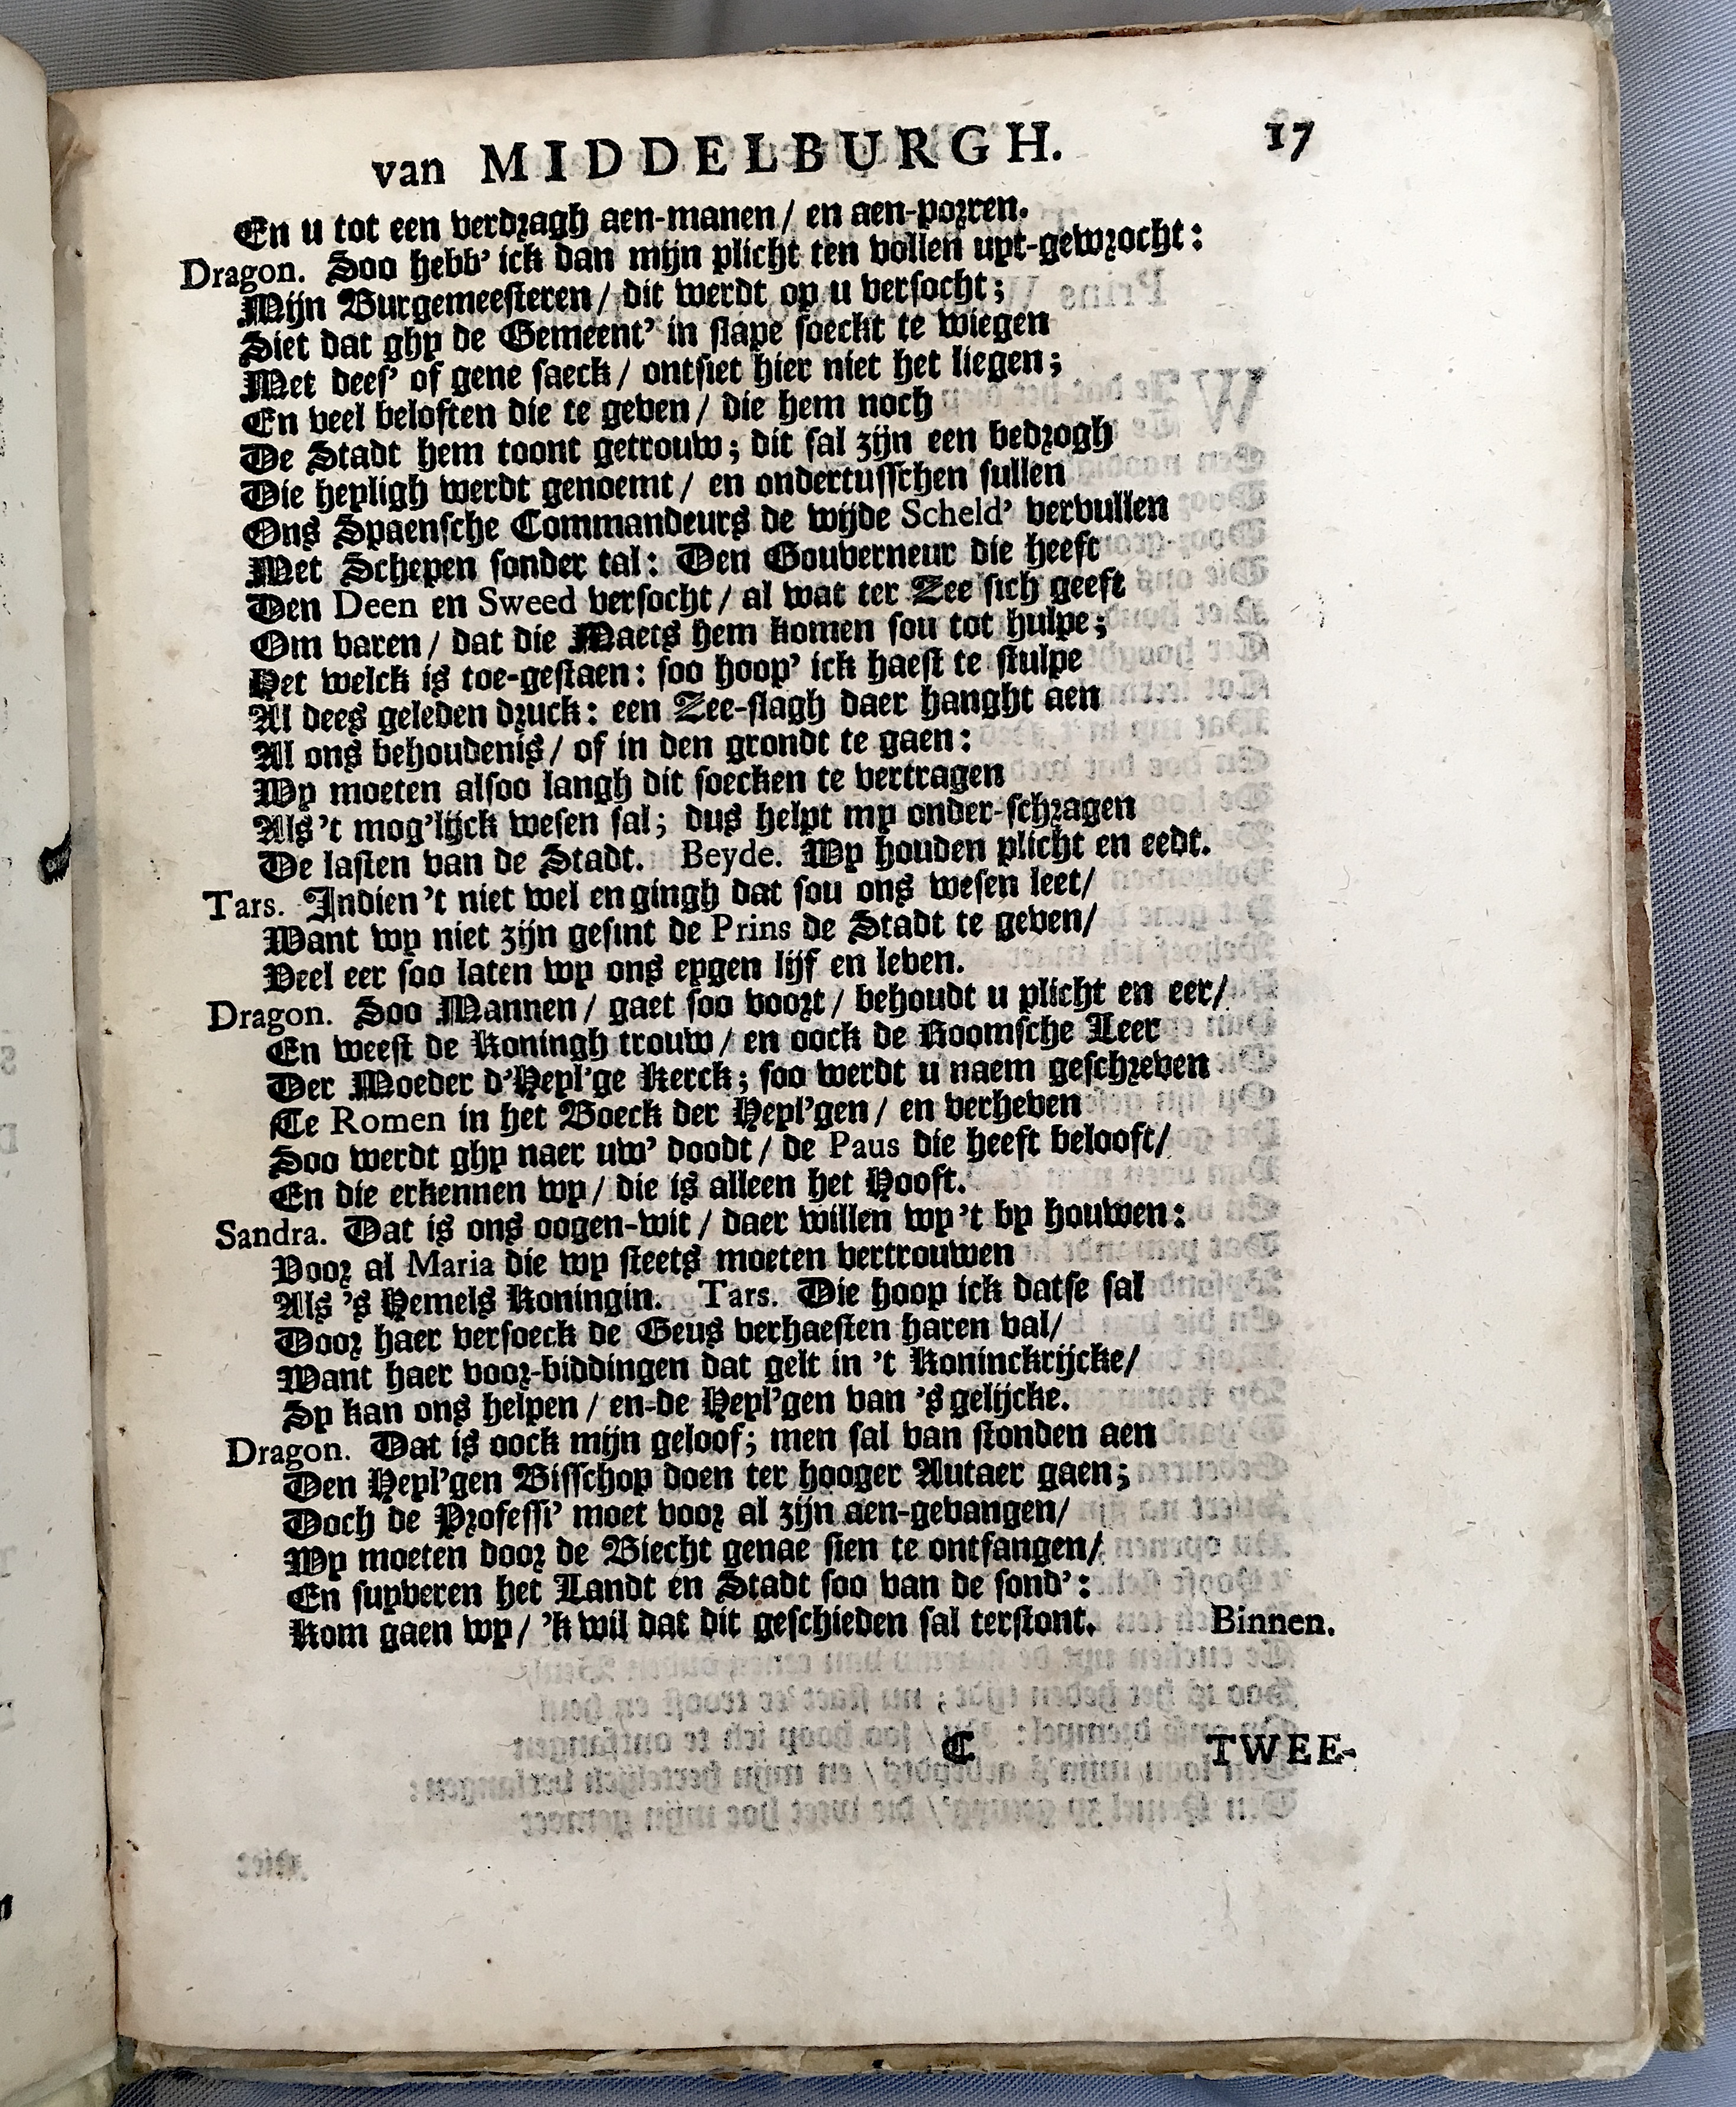 van MIDDELBURGH. 17
En u tot een verdragh aen-manen / en aen-porren.
Dragon. Soo hebb' ick dan mijn plicht ten vollen uyt-gewrocht:
Mijn Burgemeesteren / dit werdt op u versocht;
Siet dat ghy de Gemeent' in slape soeckt te wiegen
Met dees' of gene saeck / ontsiet hier niet het liegen;
En veel beloften die te geven / die hem noch
De Stadt hem toont getrouw; dit sal zijn een bedrogh
Die heyligh werdt genoemt / en ondertusschen sullen
Ons Spaensche Commandeurs de wijde Scheld' vervullen
Met Schepen sonder tal: Den Gouverneur die heeft
Den Deen en Sweed versocht / al wat ter Zee sich geeft
Om varen / dat die Maets hem komen sou tot hulpe;
Het welck is toe-gestaen: soo hoop' ick haest te stulpe
Al dees geleden druck: een Zee-slagh daer hanght aen
Al ons behoudenis / of in den grondt te gaen:
Wy moeten alsoo langh dit soecken te vertragen
Als 't mog'lijck wesen sal; dus helpt my onder-schragen
De lasten van de Stadt. Beyde. Wy houden plicht en eedt.
Tars. Indien 't niet wel en gingh dat sou ons wesen leet /
Want wy niet zijn gesint de Prins de Stadt te geven /
Veel eer soo laten wy ons eygen lijf en leven.
Dragon. Soo Mannen / gaet soo voort / behoudt u plicht en eer /
En weest de Koningh trouw / en oock de Roomsche Leer
Der Moeder d'Heyl'ge Kerck; soo werdt u naem geschreven
Te Romen in het Boeck der Heyl'gen / en verheven
Soo werdt ghy naer uw' doodt / de Paus die heeft belooft /
En die erkennen wy / die is alleen het Hooft.
Sandra. Dat is ons oogen-wit / daer willen wy 't by houwen:
Voor al Maria die wy steets moeten vertrouwen
Als 's Hemels Koningin. Tars. Die hoop ick datse sal
Door haer versoeck de Geus verhaesten haren val /
Want haer voor-biddingen dat gelt in 't Koninckrijcke /
Sy kan ons helpen / en-de Heyl'gen van 's gelijcke.
Dragon. Dat is oock mijn geloof; men sal van stonden aen
Den Heyl'gen Bisschop doen ter hooger Autaer gaen;
Doch de Professi' moet voor al zijn aen-gevangen /
Wy moeten door de Biecht genae sien te ontfangen /
En suyveren het Landt en Stadt soo van de sond':
Kom gaen wy / 'k wil dat dit geschieden sal terstont. Binnen.
C TWEE-